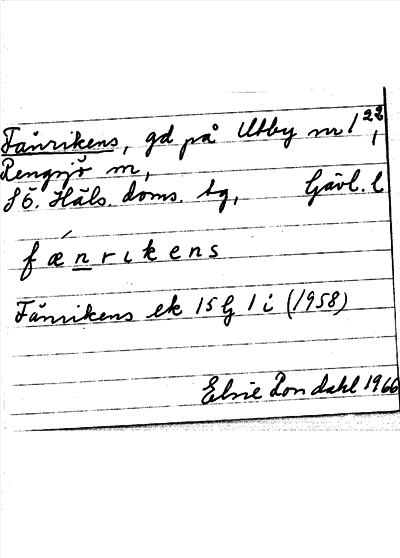 Fänrikens, gd på Utby nr 1²²,
Rengsjö m,
Sö. Häls. doms. tg, Gävl. l
fǽnrikens
Fänrikens ek 15G 1 i (1958)
Elsie Rondahl 1966